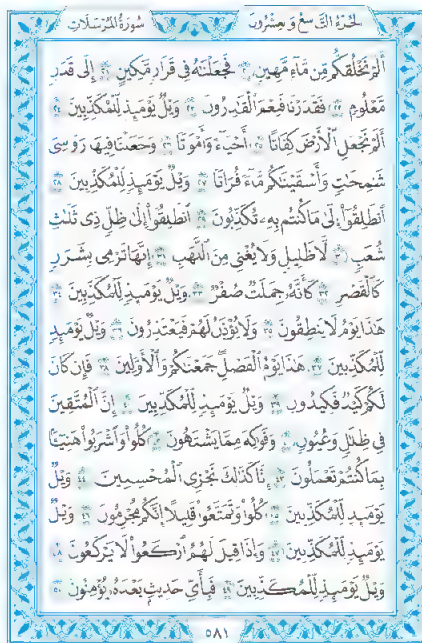 الجزء التاسع وعشرون سورة المرسلات
ألم نخلقكم من ماء مهين ٢٠ فجعلنه في قرار مكين ٢١ إلى قدر
معلوم ٢٢ فقدرنا فنعم القدرون ٢٣ ويل يومئذ للمكذبين ٢٤
ألم نجعل الأرض كفاتا ٢٥ أحياء وأموتا ٢٦ وجعلنا فيها روسي
شمخت وأسقينكم ماء فراتا ٢٧ ويل يومئذ للمكذبين ٢٨
انطلقوا إلى ما كنتم به تكذبون ٢٩ انطلقوا إلى ظل ذي ثلث
شعب ٣٠ لا ظليل ولا يغني من اللهب ٣١ إنها ترمي بشرر
كالقصر ٣٢ كأنه جملت صفر ٣٣ ويل يومئذ للمكذبين ٣٤
هذا يوم لا ينطقون ٣٥ ولا يؤذن لهم فيعتذرون ٣٦ ويل يومئذ
للمكذبين ٣٧ هذا يوم الفصل جمعنكم والأولين ٣٨ فإن كان
لكم كيد فكيدون ٣٩ ويل يومئذ للمكذبين ٤٠ إن المتقين
في ظلل وعيون ٤١ وفوكه مما يشتهون ٤٢ كلوا واشربوا هنيئا
بما كنتم تعملون ٤٣ إنا كذلك نجزي المحسنين ٤٤ ويل
يومئذ للمكذبين ٤٥ كلوا وتمتعوا قليلا إنكم مجرمون ٤٦ ويل
يومئذ للمكذبين ٤٧ وإذا قيل لهم اركعوا لا يركعون ٤٨
ويل يومئذ للمكذبين ٤٩ فبأي حديث بعده يؤمنون ٥٠
٥٨١